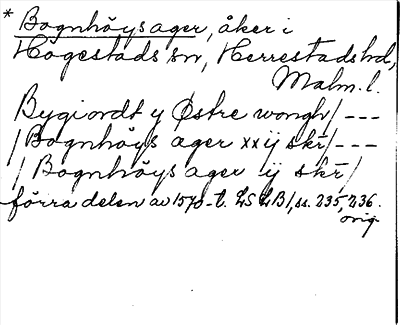 * Bognhöys ager, åker i
Högestads sn, Herrestads hd,
Malm. l.
Bygiordt y Østre wongh / ---
/ Bognhöys ager xx ij skr̄ / ---
/ Bognhöys ager ij skr̄ /
förra delen av 1570-t. LSLB 1, ss. 235, 236.
orig